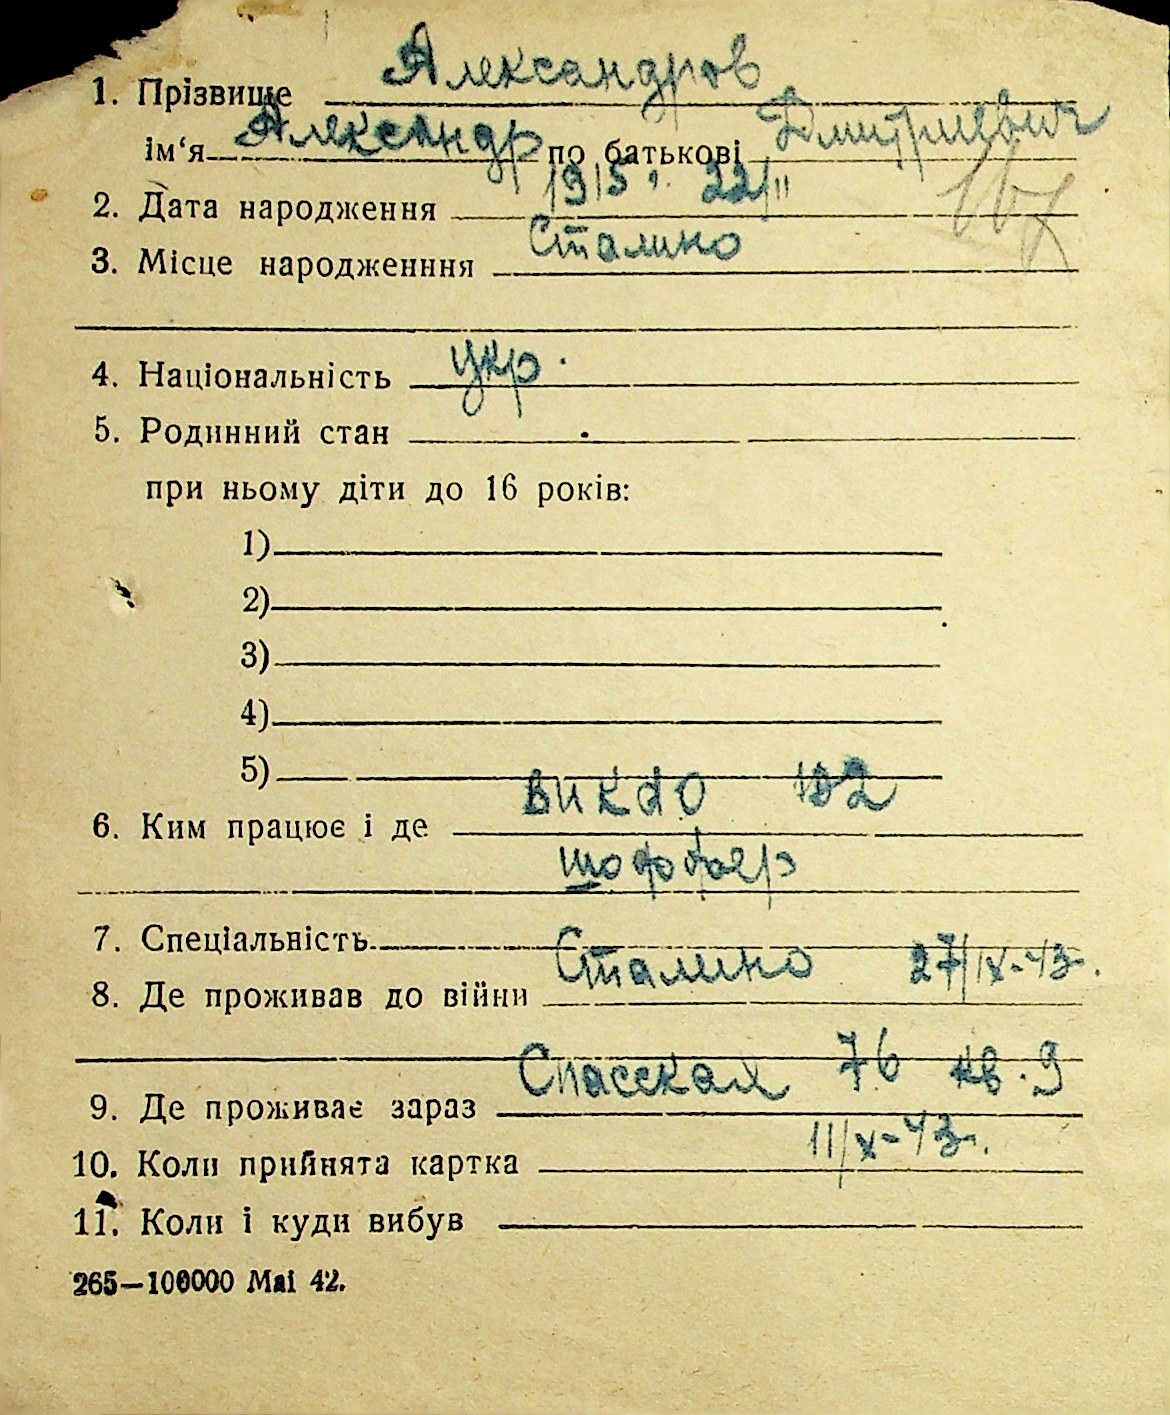 1. Прізвище Александров
ім‘я Александр по батькові Дмитриевич
2. Дата народження 1915. 22/II
3. Місце народженння Сталино
4. Національність укр.
5. Родинний стан
при ньому діти до 16 років:
1)
2)
3)
4)
5)
6. Ким працює і де ВИКДО
шоффер
7. Спеціальність
8. Де проживав до війни Сталино 27/IX-43.
9. Де проживає зараз Спасская 76 кв. 9
10. Коли прийнята картка 11/X-43.
11. Коли і куди вибув
265—100000 Mai 42.